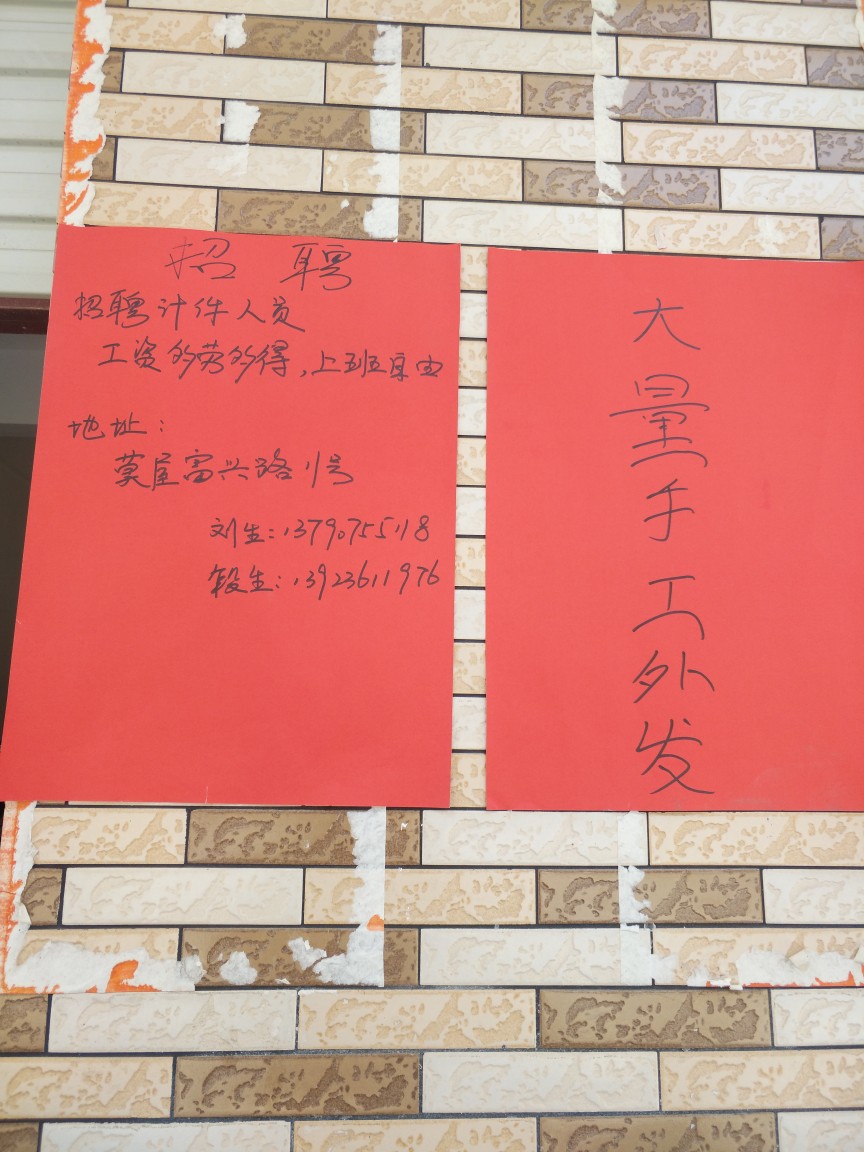 招聘
招聘计件人员
工资多劳多得,上班自由
地址:
莫屋富兴路11号
刘生:13790755118
段生:13923611976
大量手工外发